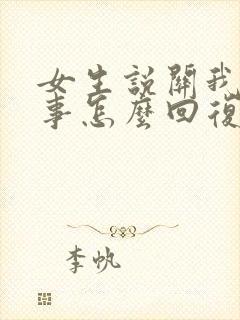 女生説關我
事怎麼回復
李帆